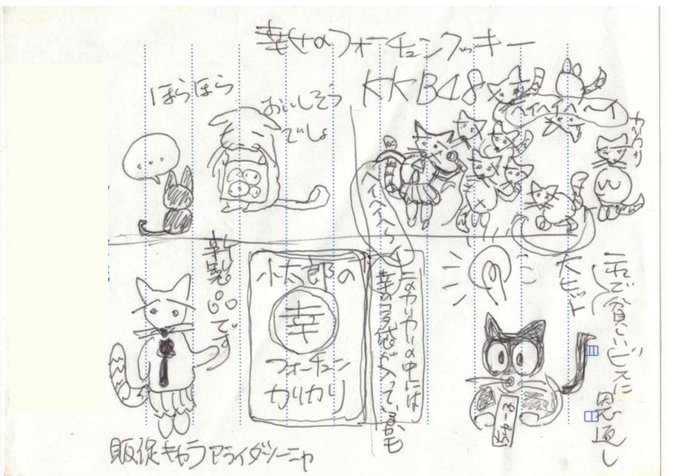 幸せのフォーチュンクッキー
KKB48
ほらほら
おいしそう
でしょ
・・・
ヘイヘイヘーイ
カリカリ
ヘイヘイヘーイ
新製品です
小太郎の
幸
フォーチュン
カリカリ
このカリカリの中には
大ヒット
これで貧しいビスに
恩返し
販促キャラ アライダソーニャ